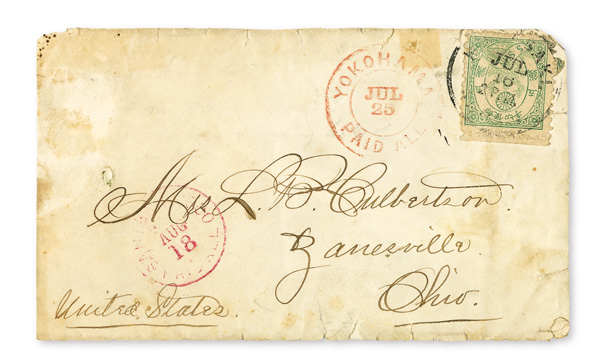 YOKOHAMA
JUL
25
PAID ALL
JUL
18
Mrs L. B. Culbertson.
Zanesville
Ohio.
AUG
18
United States.